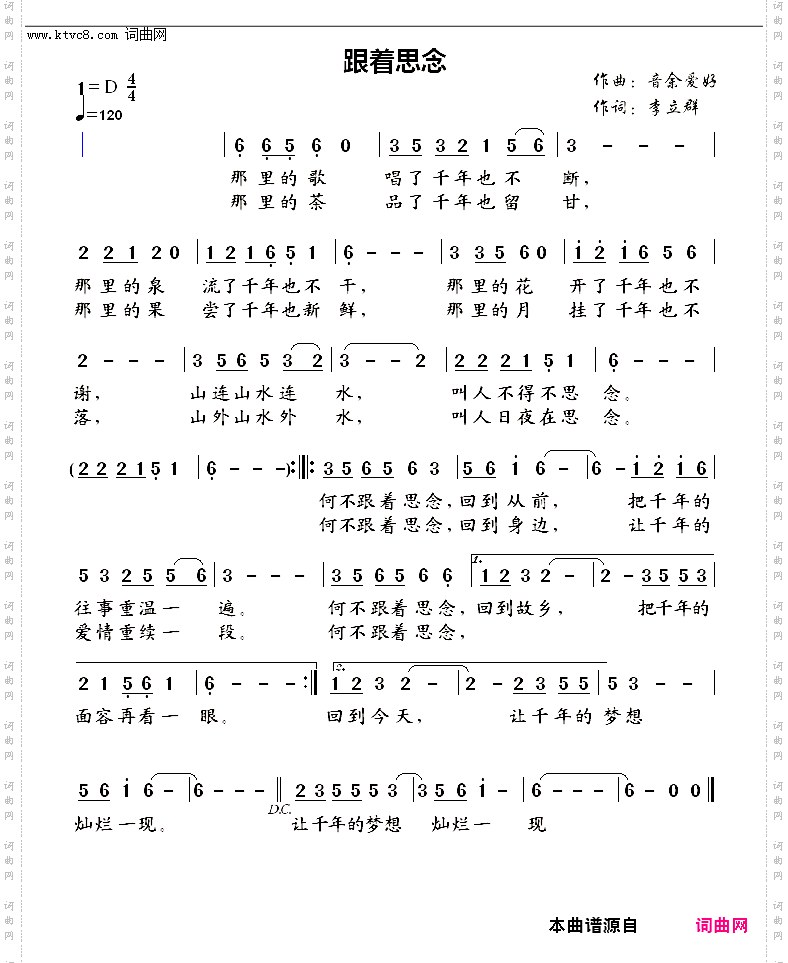 www.ktvc8.com 词曲网
跟着思念
1=D 4/4
♩=120
作曲：音余爱好
作词：李立群
6 6 5 6 0 | 3 5 3 2 1 5 6 | 3 - - - |
那里的歌 唱了千年也不 断，
那里的茶 品了千年也留 甘，
2 2 1 2 0 | 1 2 1 6 5 1 | 6 - - - | 3 3 5 6 0 | 1 2 1 6 5 6 |
那里的泉 流了千年也不 干， 那里的花 开了千年也不
那里的果 尝了千年也新 鲜， 那里的月 挂了千年也不
2 - - - | 3 5 6 5 3 2 | 3 - - 2 | 2 2 2 1 5 1 | 6 - - - |
谢， 山连山水连 水， 叫人不得不思 念。
落， 山外山水外 水， 叫人日夜在思 念。
(2 2 2 1 5 1 | 6 - - -) :||: 3 5 6 5 6 3 | 5 6 1 6 - | 6 - 1 2 1 6 |
何不跟着思念，回到从前， 把千年的
何不跟着思念，回到身边， 让千年的
5 3 2 5 5 6 | 3 - - - | 3 5 6 5 6 6 | 1. 1 2 3 2 - | 2 - 3 5 5 3 |
往事重温一 遍。 何不跟着思念，回到故乡， 把千年的
爱情重续一 段。 何不跟着思念，
2 1 5 6 1 | 6 - - - :| 2. 1 2 3 2 - | 2 - 2 3 5 5 | 5 3 - - |
面容再看一 眼。 回到今天， 让千年的梦想
5 6 1 6 - | 6 - - - || 2 3 5 5 5 3 | 3 5 6 1 - | 6 - - - | 6 - 0 0 ||
D.C.
灿烂一现。 让千年的梦想 灿烂一 现
本曲谱源自 词曲网